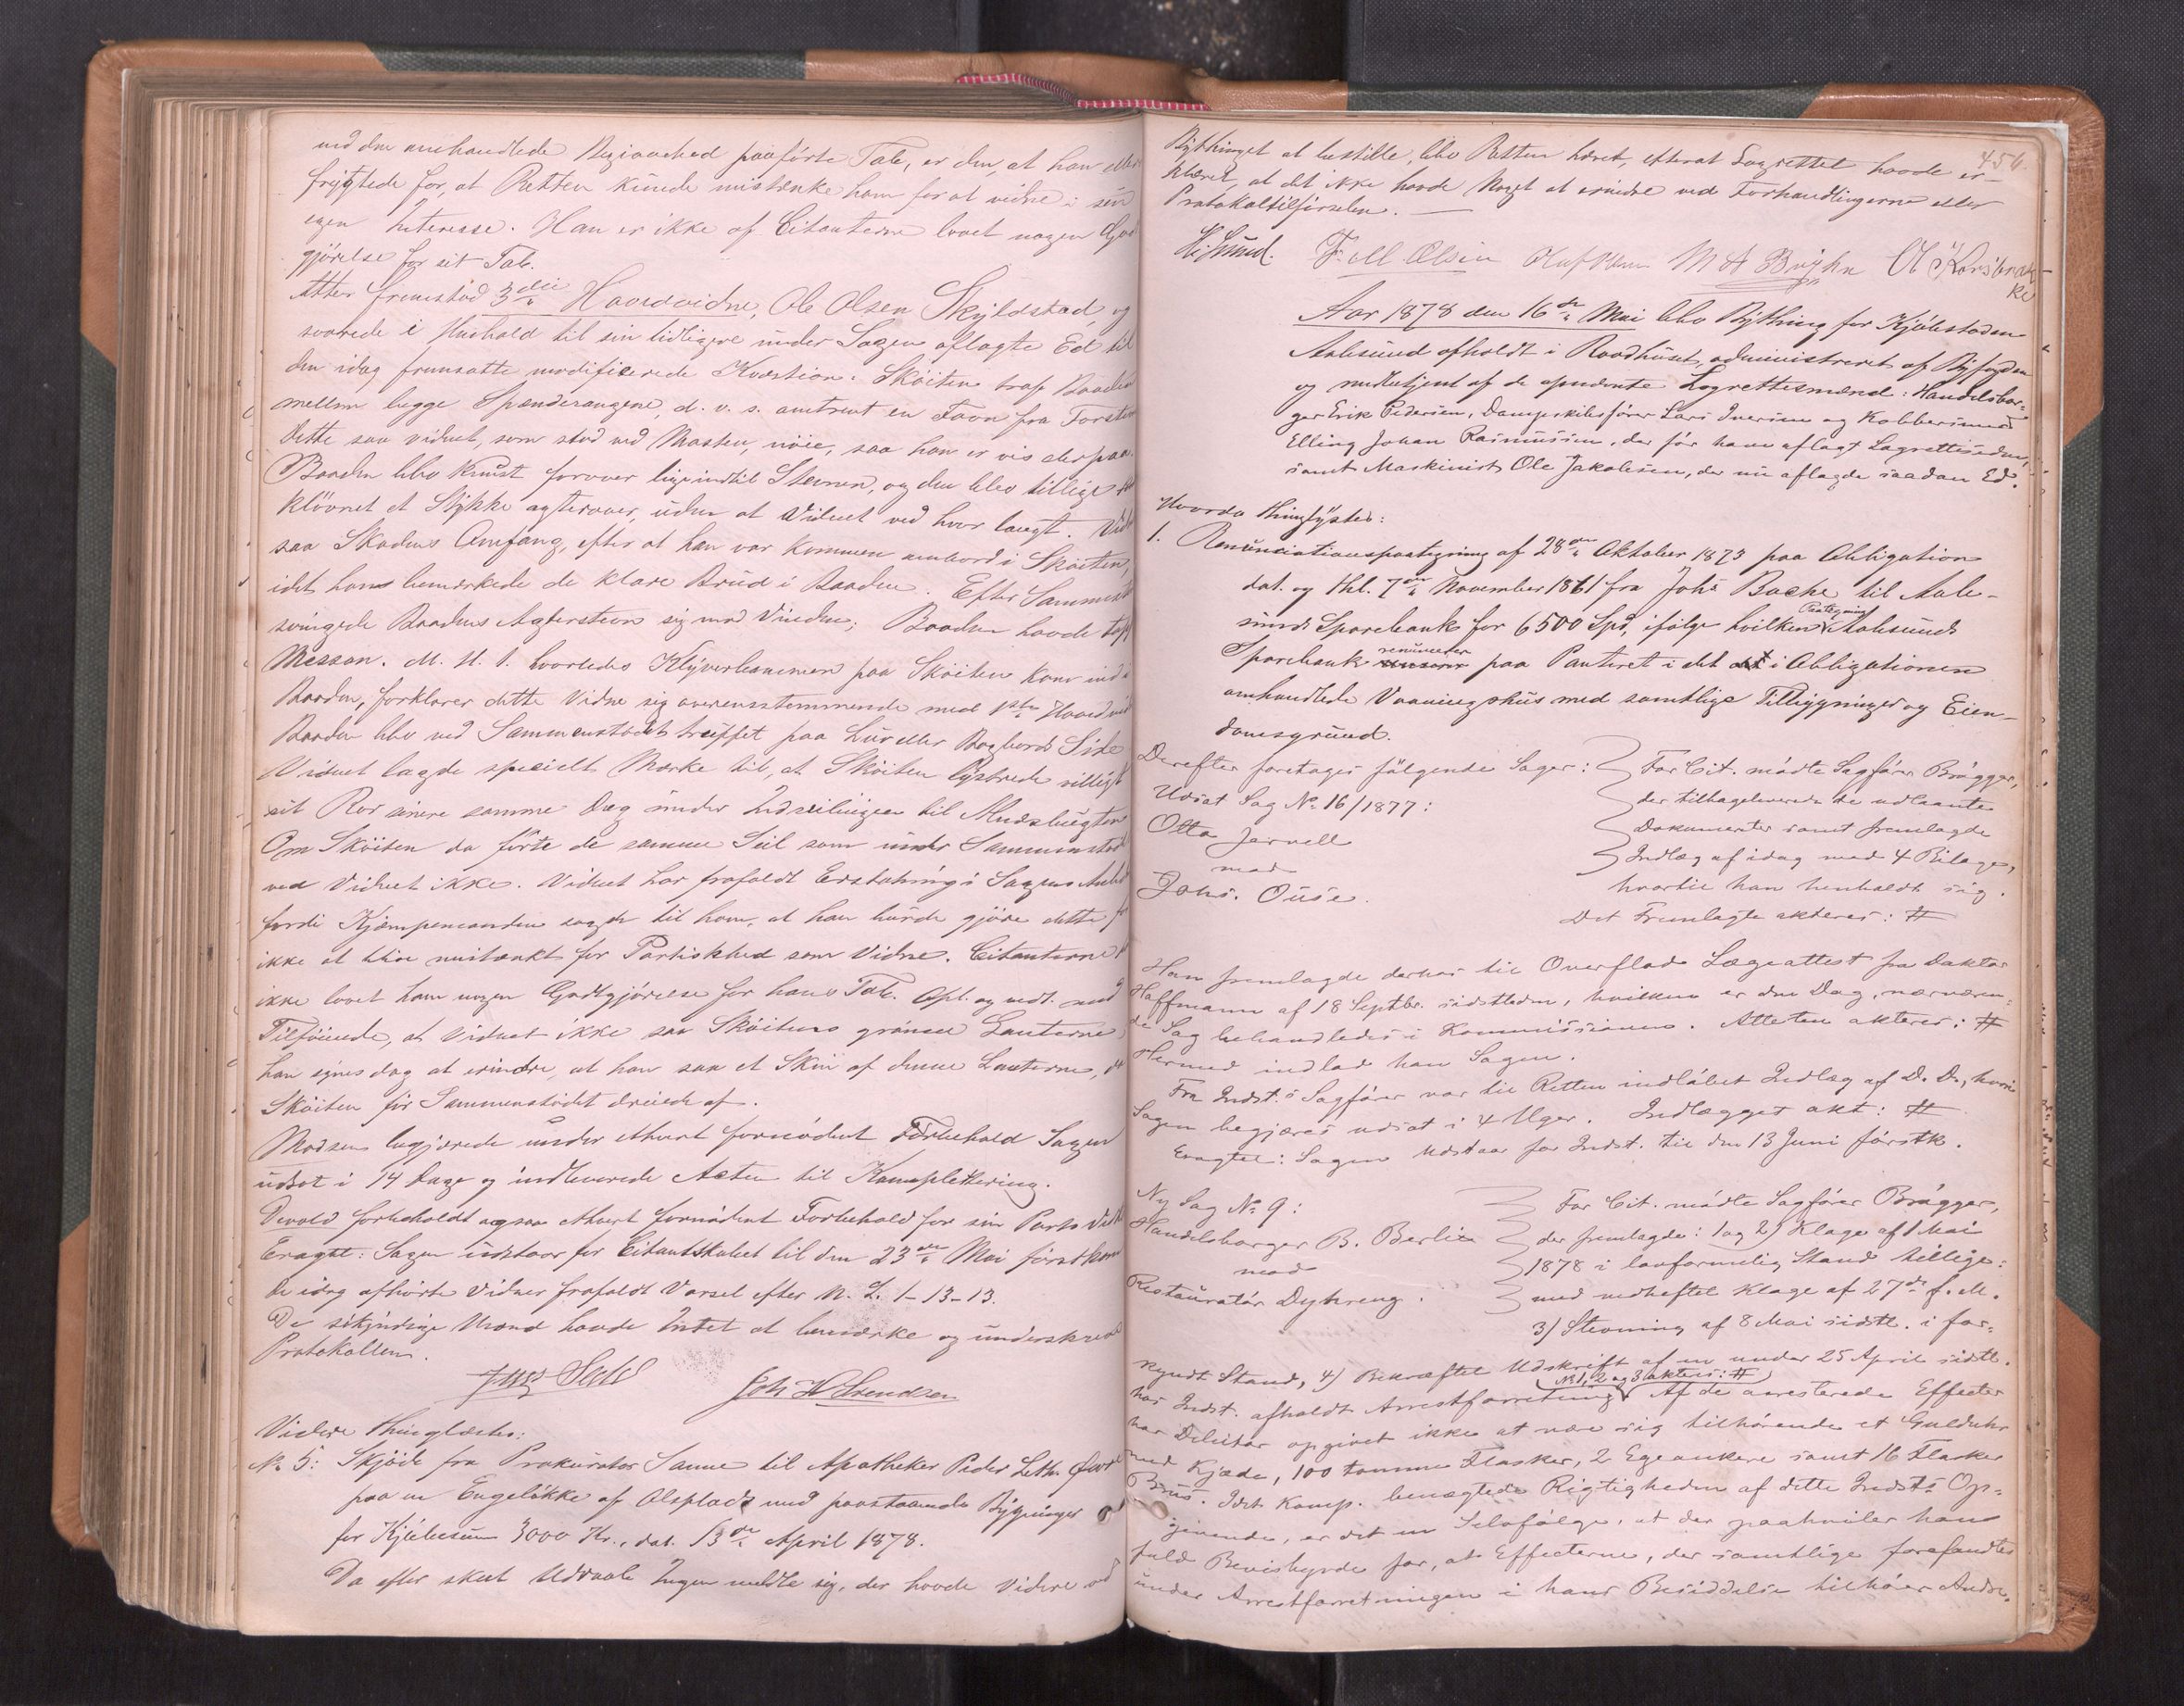 ved den omhandlede Begivenhed paaførte Tab, er den, at han ellers
frygtede for, at Retten kunde mistænke ham for at vidne i sin
egen Interesse. Han er ikke af Citanterne lovet nogen God
gjørelse for sit Tab.
Atter fremstod 3die Hovedvidne, Ole Olsen Skyldstad, og
svarede i Henhold til sin tidligere under Sagen aflagte Ed til
den idag fremsatte modificerede Kvæstion: Skøiten traf Baaden
mellem begge Spanderangene, d. v. s. omtrent en Favn fra Forstevn
Dette saa Vidnet, som stod ved Masten, nøie, saa han er vis derpaa.
Baaden blev knust forover lige indtil Stevnen, og den blev tillige
kløvnet et Stykke agterover, uden at Vidnet ved hvor langt.
saa Skadens Omfang, efter at han var kommen ombord i Skøiten,
idet han bemærkede de klare Brud i Baaden. Efter Sammenst
svingede Baadens Agterstevn sig mod Vinden; Baaden havde
Messan. M. H. t. hvorledes Klyverbommen paa Skøiten kom ind i
Baaden, forklarer dette Vidne sig overensstemmende med 1ste Hovedvid
Baaden blev ved Sammenstødet truffet paa Luv eller Bagbords Side
Vidnet lagde specielt Mærke til, at Skøiten lystrede villigt
sit Ror senere samme Dag under Indseilingen til
Om Skøiten da førte de samme Seil som under Sammenstød
ved Vidnet ikke. Vidnet har frafaldt Erstatning i Sagens
fordi Kjæmpemanden sagde til ham, at han burde gjøre dette for
ikke at blive mistænkt for Partiskhed som Vidne. Citanterne
ikke lovet ham nogen Godtgjørelse for hans Tab. Opl. og vedt. med
Tilføiende, at Vidnet ikke saa Skøitens grønne Lanterne,
han synes dog at erindre, at han saa et Skin af denne Lanterne, da
Skøiten før Sammenstødet dreiede af.
Madsen begjærede under ethvert fornødent Forbehold Sagen
udsat i 14 Dage og indleverede Acten til Komplettering.
Devold forbeholdt ogsaa ethvert fornødent Forbehold for sin Parts
Eragtet: Sagen udstaar for Citantskabet til den 23de Mai førstkom
De idag afhørte Vidner frafaldt Varsel efter N. L. 1-13-13.
De søkyndige Mænd havde Intet at bemærke og underskrev
Protokollen.
Joh H Svendsen
Videre thinglæstes:
No 5: Skjøde fra Prokurator Sanne til Apotheker Peder Leth
paa en Engeløkke af Olsplads med paastaaende Bygninger
for Kjøbesum 3000 Kr., dat. 13de April 1878.
Da efter skeet Udraab Ingen meldte sig, der havde Videre ved
456.
Bythinget at bestille, blev Retten hævet, efterat Lagrettet havde er-
klæret, at det ikke havde Noget at erindre ved Forhandlingerne eller
Protokoltilførselen. —
F. ell. Olsen M A Brýhn
Aar 1878 den 16de Mai blev Bything for Kjøbstaden
Aalesund afholdt i Raadhuset, administreret af Byfogden
og meddetjent af de opnævnte Lagrettesmænd: Handelsbor-
ger Erik Pedersen, Dampskibsfører Lars Iversen og Kobbersmed
Elling Johan Rasmussen, der før have aflagt Lagrettesseden,
samt Maskinist Ole Jakobsen, der nu aflagde saadan Ed.
Hvorda thinglystes:
1. Renunciationspaategning af 28de Oktober 1873 paa Obligation
dat. og thl. 7de November 1861 fra Johs Bache til Aale-
sunds Sparebank for 6500 Spd, ifølge hvilken Paategning Aalesunds
Sparebank renuncerer paa Panteret i det i Obligationen
omhandlede Vaaningshus med samtlige Tilliggninger og Eien-
domsgrund.
Derefter foretoges følgende Sager:
Udsat Sag No 16/1877:
Otto Jervell
mod
Johs. Ouse.
For Cit. mødte Sagfører Brøgger,
der tilbageleverede de udlaante
Dokumenter samt fremlagde
Indlæg af idag med 4 Bilage,
hvortil han henholdt sig.
Det Fremlagte akteres: #
Han fremlagde derhos til Overflod Lægeattest fra Doktor
Hoffmann af 18 Septbr. sidstleden, hvilken er den Dag, nærværen-
de Sag behandledes i Kommissionen. Attesten akteres: #
Hermed indlod han Sagen.
Fra Indst.s Sagfører var til Retten indløbet Indlæg af D. D., hvori
Sagen begjæres udsat i 4 Uger. Indlægget akt: #
Eragtet: Sagen udstaar for Indst. til den 13 Juni førstk.
Ny Sag No 9:
Handelsborger B. Berlin
mod
Restauratør Dykreng.
For Cit. mødte Sagfører Brøgger,
der fremlagde: 1 og 2) Klage af 1 Mai
1878 i lovformelig Stand tillige:
med vedheftet Klage af 27de f. M.
3) Stevning af 8 Mai sidstl. i for-
kyndt Stand, 4) Bekræftet Udskrift af en under 25 April sidstl.
hos Indst. afholdt Arrestforretning (No 1, 2 og 3 akteres: #) Af de arresterede Effecter
har Debitor opgivet ikke at være sig tilhørende et Gulduhr
med Kjæde, 100 tomme Flasker, 2 Egeankere samt 16 Flasker
Brus. Idet Komp. benægtede Rigtigheden af dette Indst.s Op-
givende, er det en Selvfølge, at der paahviler ham
fuld Bevisbyrde for, at Effecterne, der samtlige forefandtes
under Arrestforretningen i hans Besiddelse tilhører Andre.